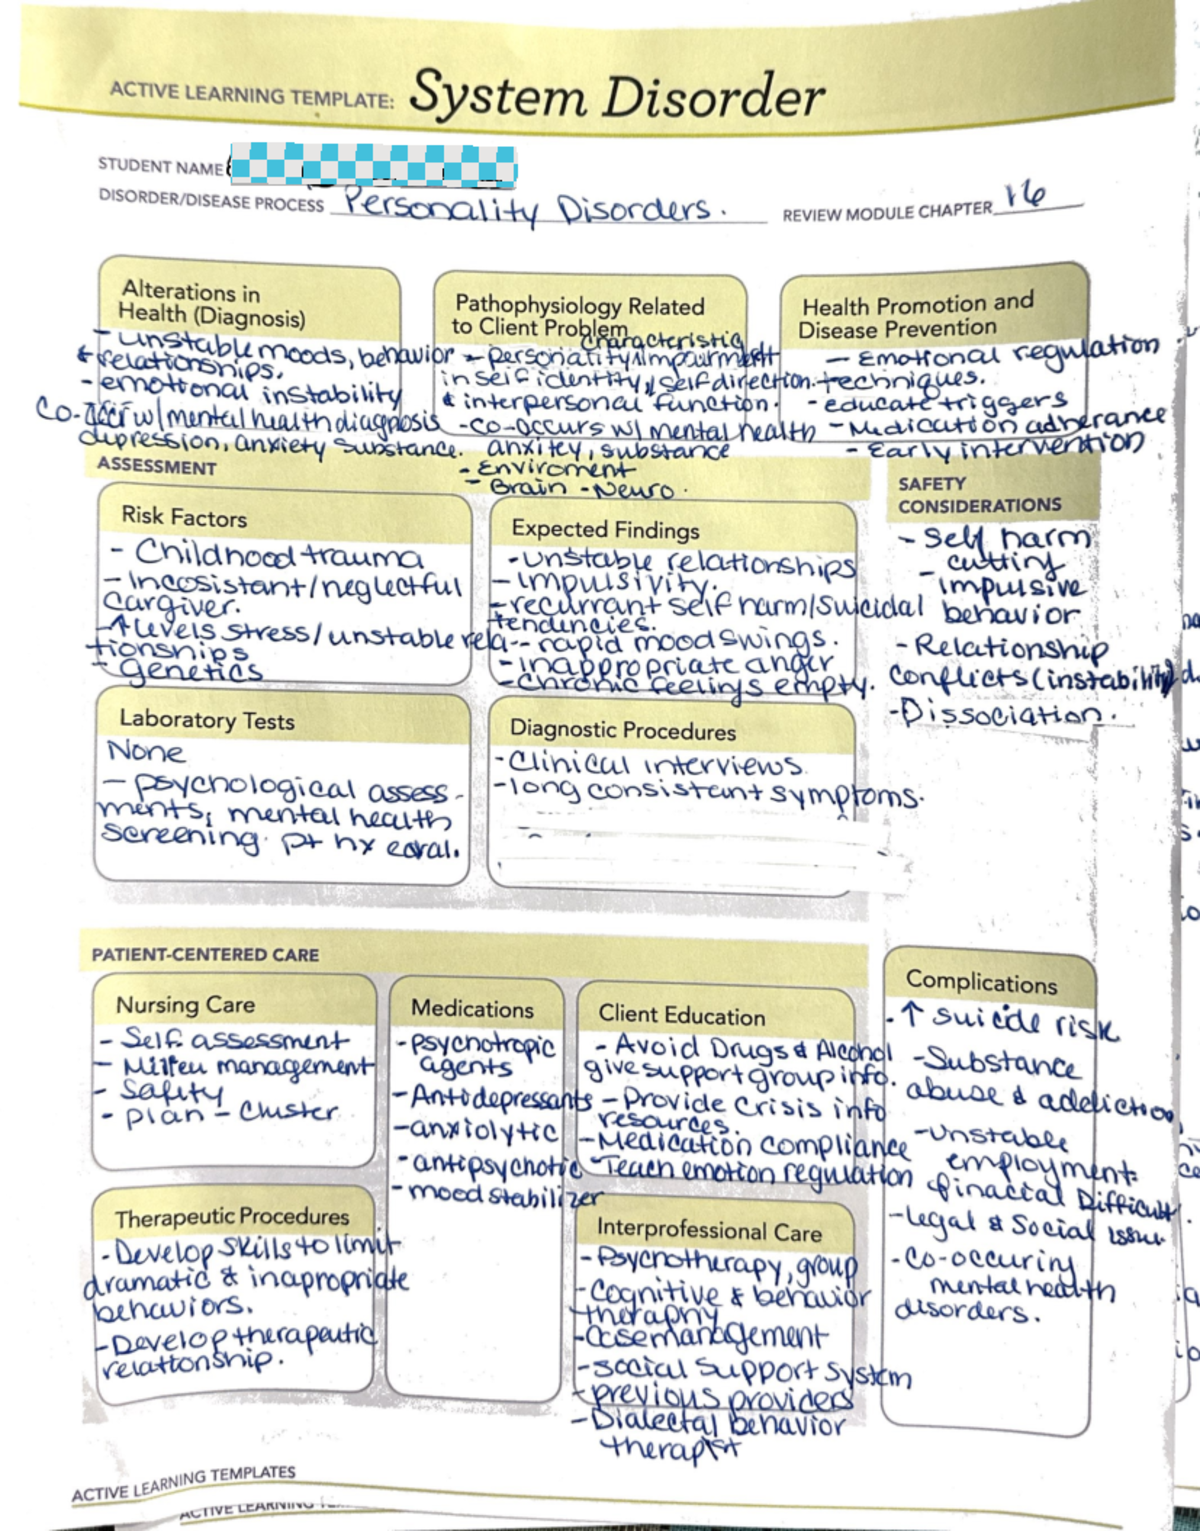 ACTIVE LEARNING TEMPLATE: System Disorder
STUDENT NAME
DISORDER/DISEASE PROCESS Personality Disorders. REVIEW MODULE CHAPTER 16
Alterations in
Health (Diagnosis)
- unstable moods, behavior
& relationships.
- emotional instability
Co-occr w/ mental health diagnosis
depression, anxiety substance.
Pathophysiology Related
to Client Problem
characteristic
- personality impairment
in self identity, self direction.
& interpersonal function.
- co-occurs w/ mental health
anxitey, substance
- Enviroment
- Brain - Neuro.
Health Promotion and
Disease Prevention
- Emotional regulation
techniques.
- educate triggers
- Medication adherance
- Early intervention
ASSESSMENT
SAFETY
CONSIDERATIONS
Risk Factors
- Childhood trauma
- Incosistant/neglectful
cargiver.
- ↑ levels stress/unstable rela-
tionships
- genetics
Expected Findings
- unstable relationships
- Impulsivity.
- recurrant self harm/suicidal
tendencies.
- rapid mood swings.
- inappropriate anger
- Chronic feelings empty.
- Self harm
cutting
- impulsive
behavior
- Relationship
conflicts (instability)
- Dissociation.
Laboratory Tests
None
- psychological assess-
ments, mental health
screening. pt hx
Diagnostic Procedures
- Clinical interviews
- long consistant symptoms.
PATIENT-CENTERED CARE
Nursing Care
- Self assessment
- Milieu management
- Safety
- plan - Cluster
Medications
- psychotropic
agents
- Antidepressants
- anxiolytic
- antipsychotic
- mood stabilizer
Client Education
- Avoid Drugs & Alcohol
give support group info.
- Provide Crisis info
resources.
- Medication compliance
- Teach emotion regulation
Complications
- ↑ suicide risk
- Substance
abuse & addiction
- unstable
employment
& finacial Difficult.
- legal & Social issue
- Co-occuring
mental health
disorders.
Therapeutic Procedures
- Develop skills to limit
dramatic & inapropriate
behaviors.
- Develop therapeutic
relationship.
Interprofessional Care
- Psychotherapy, group
- Cognitive & behavior
theraphy
- Case management
- social support system
- previous providers
- Dialectal behavior
therapist
ACTIVE LEARNING TEMPLATES
ACTIVE LEARNING